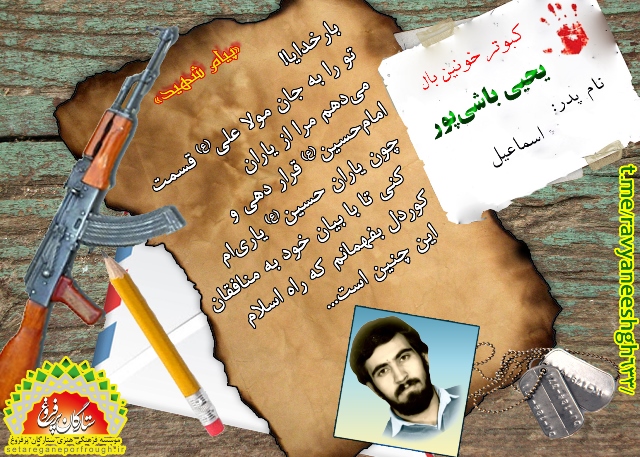 کبوتر خونین بال
یحیی باشی‌پور
نام پدر: اسماعیل
«پیام شهید»
بارخدایا!
تو را به جان مولا علی (ع) قسمت
می‌دهم مرا از یاران
امام‌حسین (ع) قرار دهی و
چون یاران حسین (ع) یاری‌ام
کنی تا با بیان خود به منافقان
کوردل بفهمانم که راه اسلام
این چنین است...
t.me/ravyaneeshgh۱۳۲/
ستارگان پرفروغ
موسسه فرهنگی هنری ستارگان پرفروغ
setareganeporfrough.ir